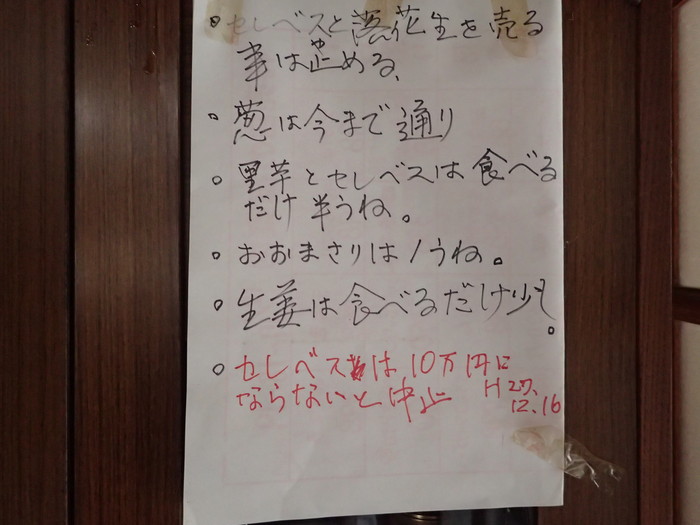 ○ セレベスと落花生を売る
事は止める、
○ 葱は今まで通り
○ 里芋とセレベスは食べる
だけ半うね。
○ おおまさりは1うね。
○ 生姜は食べるだけ少も。
○ セレベスは10万円に
ならないと中止 H27.
12.16